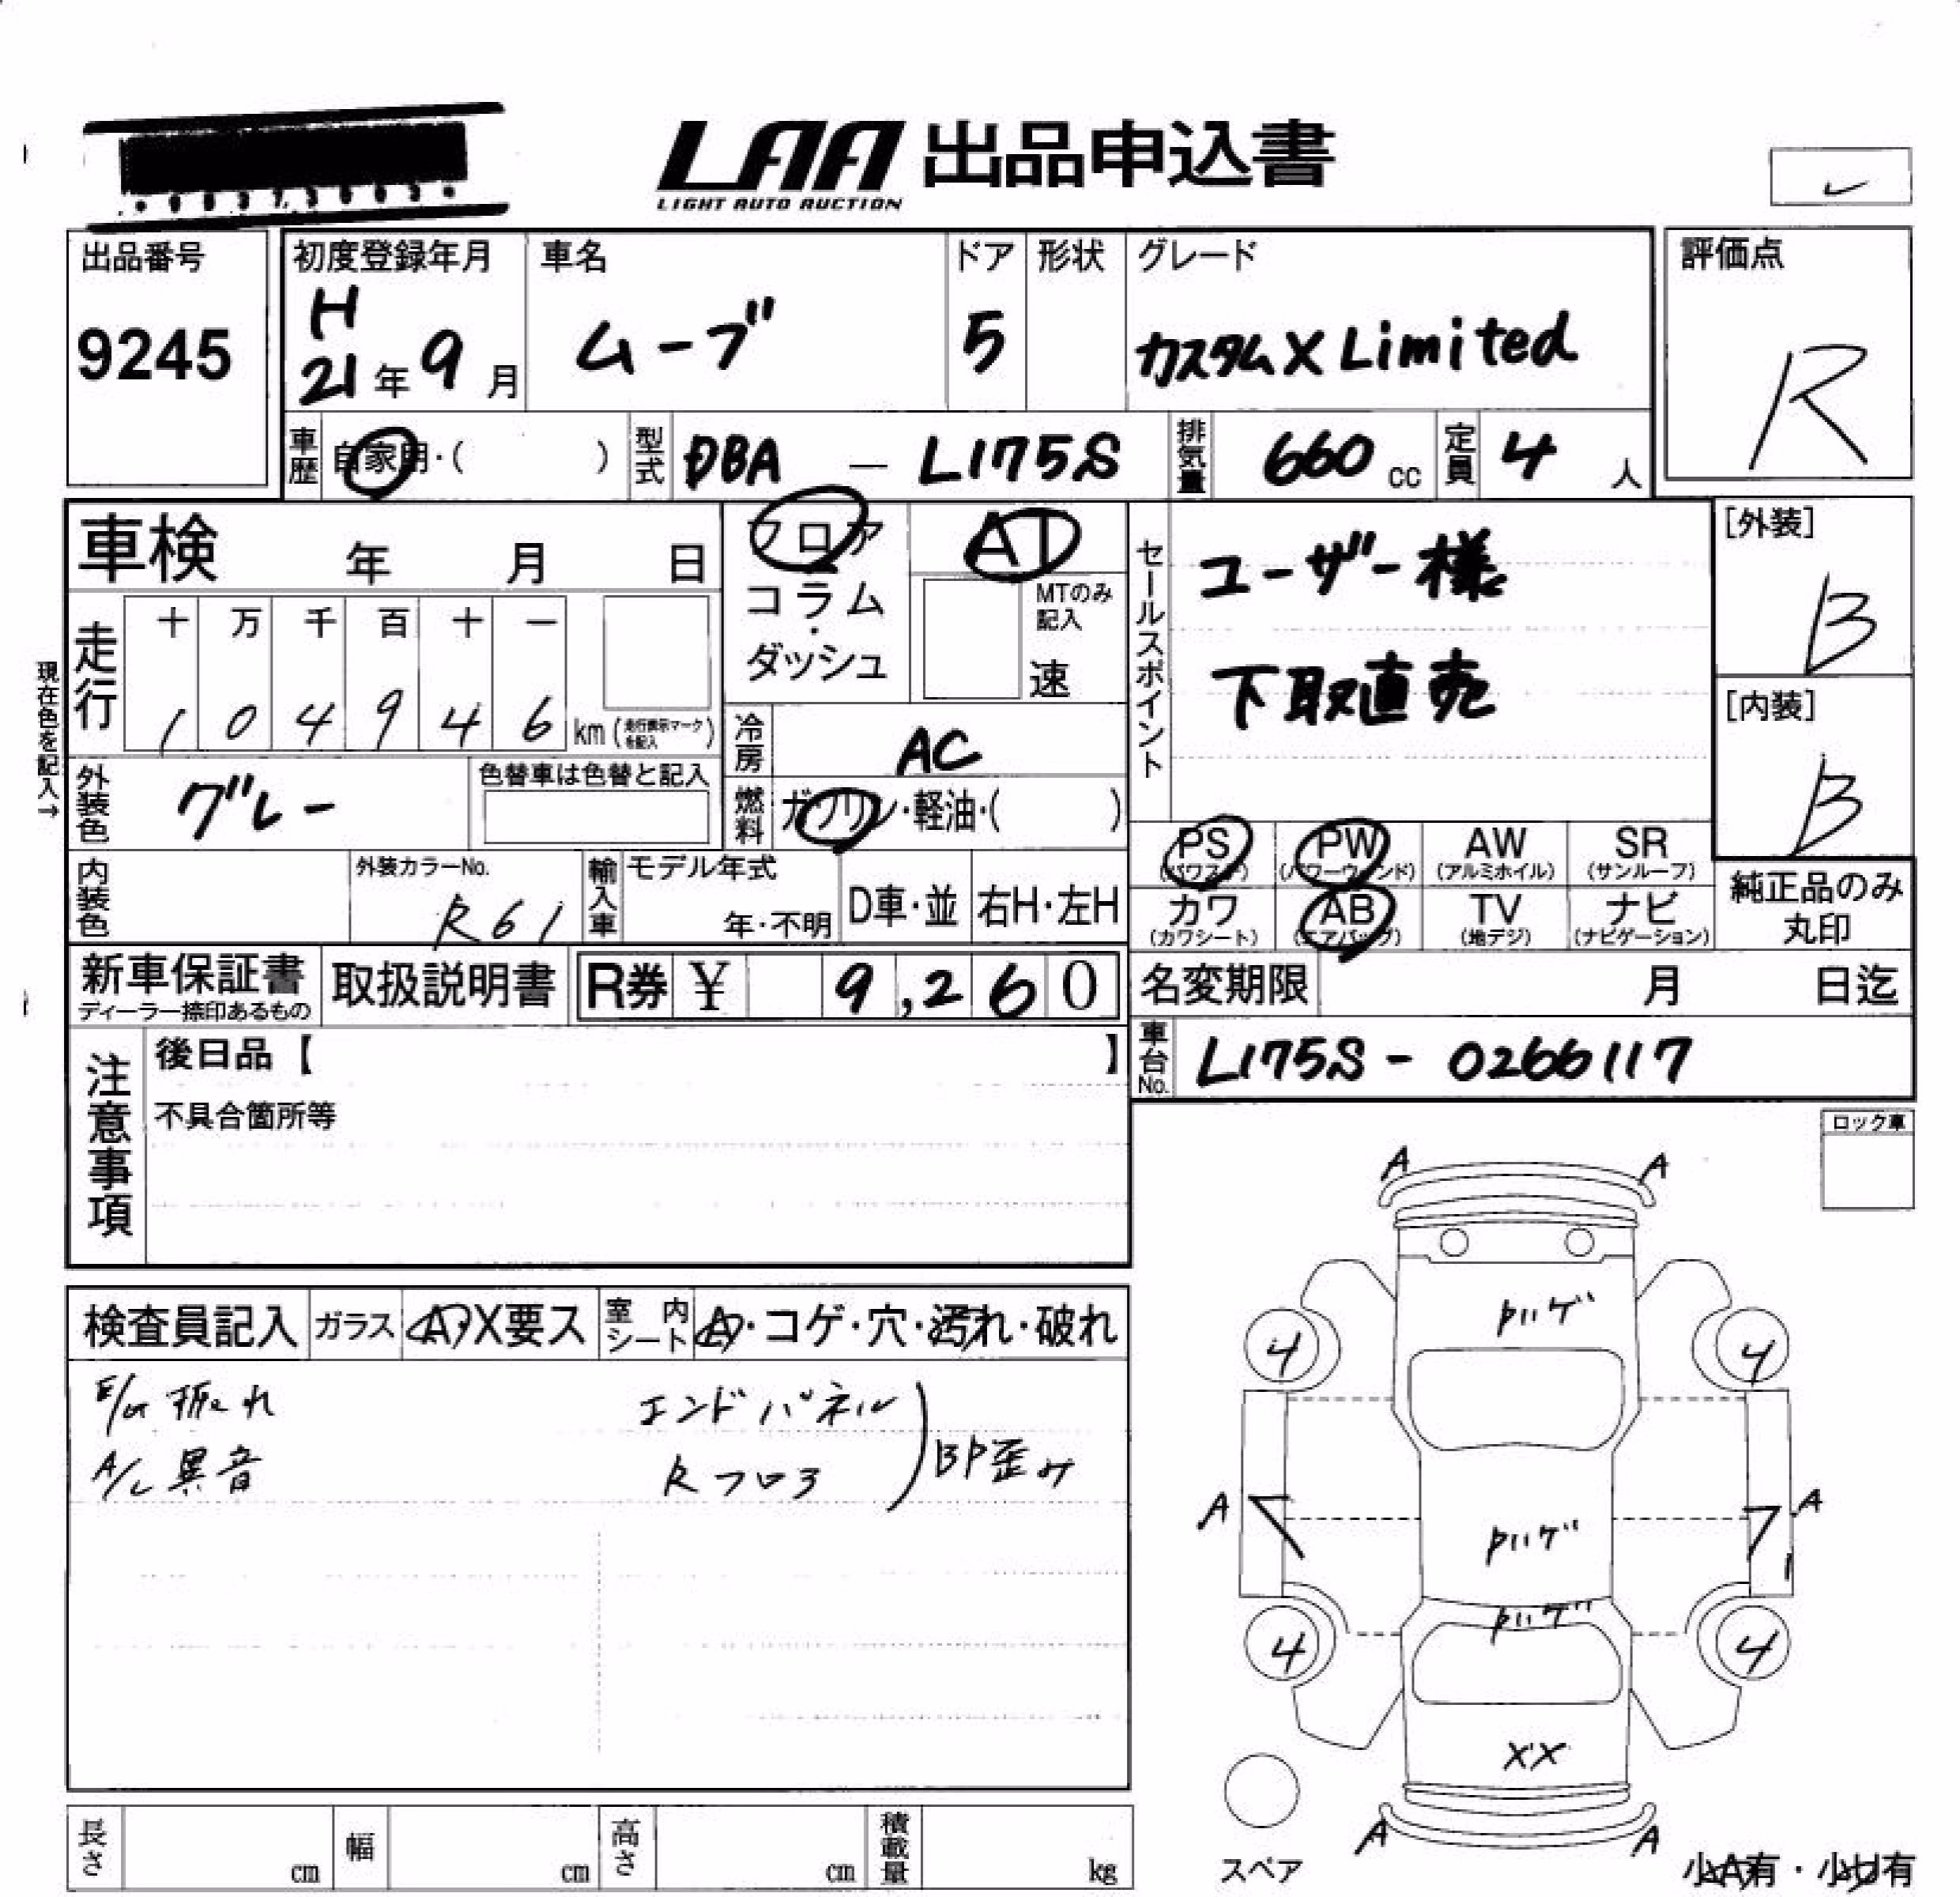 LAA 出品申込書
LIGHT AUTO AUCTION
出品番号
9245
初度登録年月
H
21年9月
車名
ムーブ
ドア
5
形状
グレード
カスタムX Limited
評価点
R
車歴
自家用・( )
型式
DBA — L175S
排気量
660 cc
定員
4 人
車検 年 月 日
フロア
コラム
・
ダッシュ
AT
MTのみ
記入
速
セールスポイント
ユーザー様
下取直売
[外装]
B
[内装]
B
現在色を記入→
走行
十 万 千 百 十 一
1 0 4 9 4 6 km (走行表示マークを記入)
冷房
AC
外装色
グレー
色替車は色替と記入
燃料
ガソリン・軽油・( )
PS
(パワステ)
PW
(パワーウィンド)
AW
(アルミホイル)
SR
(サンルーフ)
カワ
(カワシート)
AB
(エアバッグ)
TV
(地デジ)
ナビ
(ナビゲーション)
純正品のみ
丸印
内装色
外装カラーNo.
R61
輸入車
モデル年式
年・不明
D車・並
右H・左H
新車保証書
ディーラー捺印あるもの
取扱説明書
R券 ¥ 9,260
名変期限 月 日迄
車台No.
L175S - 0266117
注意事項
後日品【 】
不具合箇所等
ロック車
検査員記入
ガラス
A・X要ス
室内
シート
A・コゲ・穴・汚れ・破れ
E/G振れ
A/C異音
エンドパネル
Rフロア
BP歪み
A A
ハゲ
4 4
A A
ハゲ
ハゲ
4 4
XX
A A
スペア
小A有・小U有
長さ cm
幅 cm
高さ cm
積載量 kg